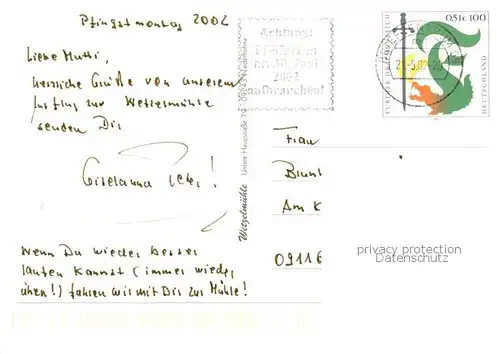 Pfingstmontag 2002
Liebe Mutti,
herzliche Grüße von unserem
Ausflug zur Wetzelmühle
senden Dir
Giselanna
Wenn Du wieder besser
laufen kannst (immer wieder
üben!) fahren wir mit Dir zur Mühle!
Wetzelmühle
Unsere Hauptstraße 79
Achtung:
bis 30. Juni
2002
aufbrauchen!
0,51€ 100
FÜR DEN
DEUTSCHLAND
21.5.02
Frau
Am K
09116
privacy protection
Datenschutz